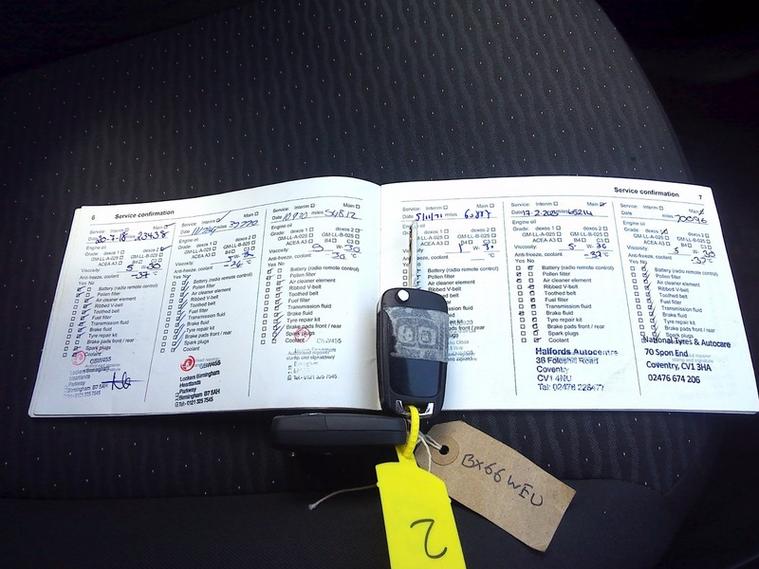 6 Service confirmation
Service: Interim Main
Date 20-7-18 miles 23438
Engine oil
Grade: dexos 1 dexos 2
GM-LL-A-025 GM-LL-B-025
ACEA A3 B4 C3
Viscosity 5 30
Anti-freeze, coolant -37 °C
Yes No
Battery (radio remote control)
Pollen filter
Air cleaner element
Ribbed V-belt
Toothed belt
Fuel filter
Transmission fluid
Brake fluid
Tyre repair kit
Brake pads front / rear
Spark plugs
Coolant
Lookers Birmingham
Heartlands
Parkway
Birmingham B7 5AH
Service: Interim Main
Date miles
Engine oil
Grade: dexos 1 dexos 2
GM-LL-A-025 GM-LL-B-025
ACEA A3 B4 C3
Viscosity
Anti-freeze, coolant °C
Yes No
Battery (radio remote control)
Pollen filter
Air cleaner element
Ribbed V-belt
Toothed belt
Fuel filter
Transmission fluid
Brake fluid
Tyre repair kit
Brake pads front / rear
Spark plugs
Coolant
Lookers Birmingham
Heartlands
Parkway
Birmingham B7 5AH
Tel: 0121 325 7545
Service: Interim Main
Date miles 54812
Engine oil
Grade: dexos 1 dexos 2
GM-LL-A-025 GM-LL-B-025
ACEA A3 B4 C3
Viscosity
Anti-freeze, coolant °C
Yes No
Battery (radio remote control)
Pollen filter
Air cleaner element
Ribbed V-belt
Toothed belt
Fuel filter
Transmission fluid
Brake fluid
Tyre repair kit
Brake pads front / rear
Spark plugs
Coolant
Service confirmation 7
Service: Interim Main
Date 5/11/21 miles
Engine oil
dexos 1 dexos 2
GM-LL-A-025 GM-LL-B-025
ACEA A3 B4 C3
Battery (radio remote control)
Pollen filter
Air cleaner element
Ribbed V-belt
Toothed belt
Fuel filter
Transmission fluid
Brake fluid
Tyre repair kit
Brake pads front / rear
Service: Interim Main
Date 17-2-2023 miles 65214
Engine oil
Grade: dexos 1 dexos 2
GM-LL-A-025 GM-LL-B-025
ACEA A3 B4 C3
Viscosity 5 30
Anti-freeze, coolant -37 °C
Yes No
Battery (radio remote control)
Pollen filter
Air cleaner element
Ribbed V-belt
Toothed belt
Fuel filter
Transmission fluid
Brake fluid
Tyre repair kit
Brake pads front / rear
Spark plugs
Coolant
Halfords Autocentre
38 Foleshill Road
Coventry
CV1 4NU
Service: Interim Main
Date miles 70096
Engine oil
Grade: dexos 1 dexos 2
GM-LL-A-025 GM-LL-B-025
ACEA A3 B4 C3
Viscosity 5 30
Anti-freeze, coolant °C
Yes No
Battery (radio remote control)
Pollen filter
Air cleaner element
Ribbed V-belt
Toothed belt
Fuel filter
Transmission fluid
Brake fluid
Tyre repair kit
Brake pads front / rear
National Tyres & Autocare
70 Spon End
Coventry, CV1 3HA
02476 674 206
BX66WEU
2